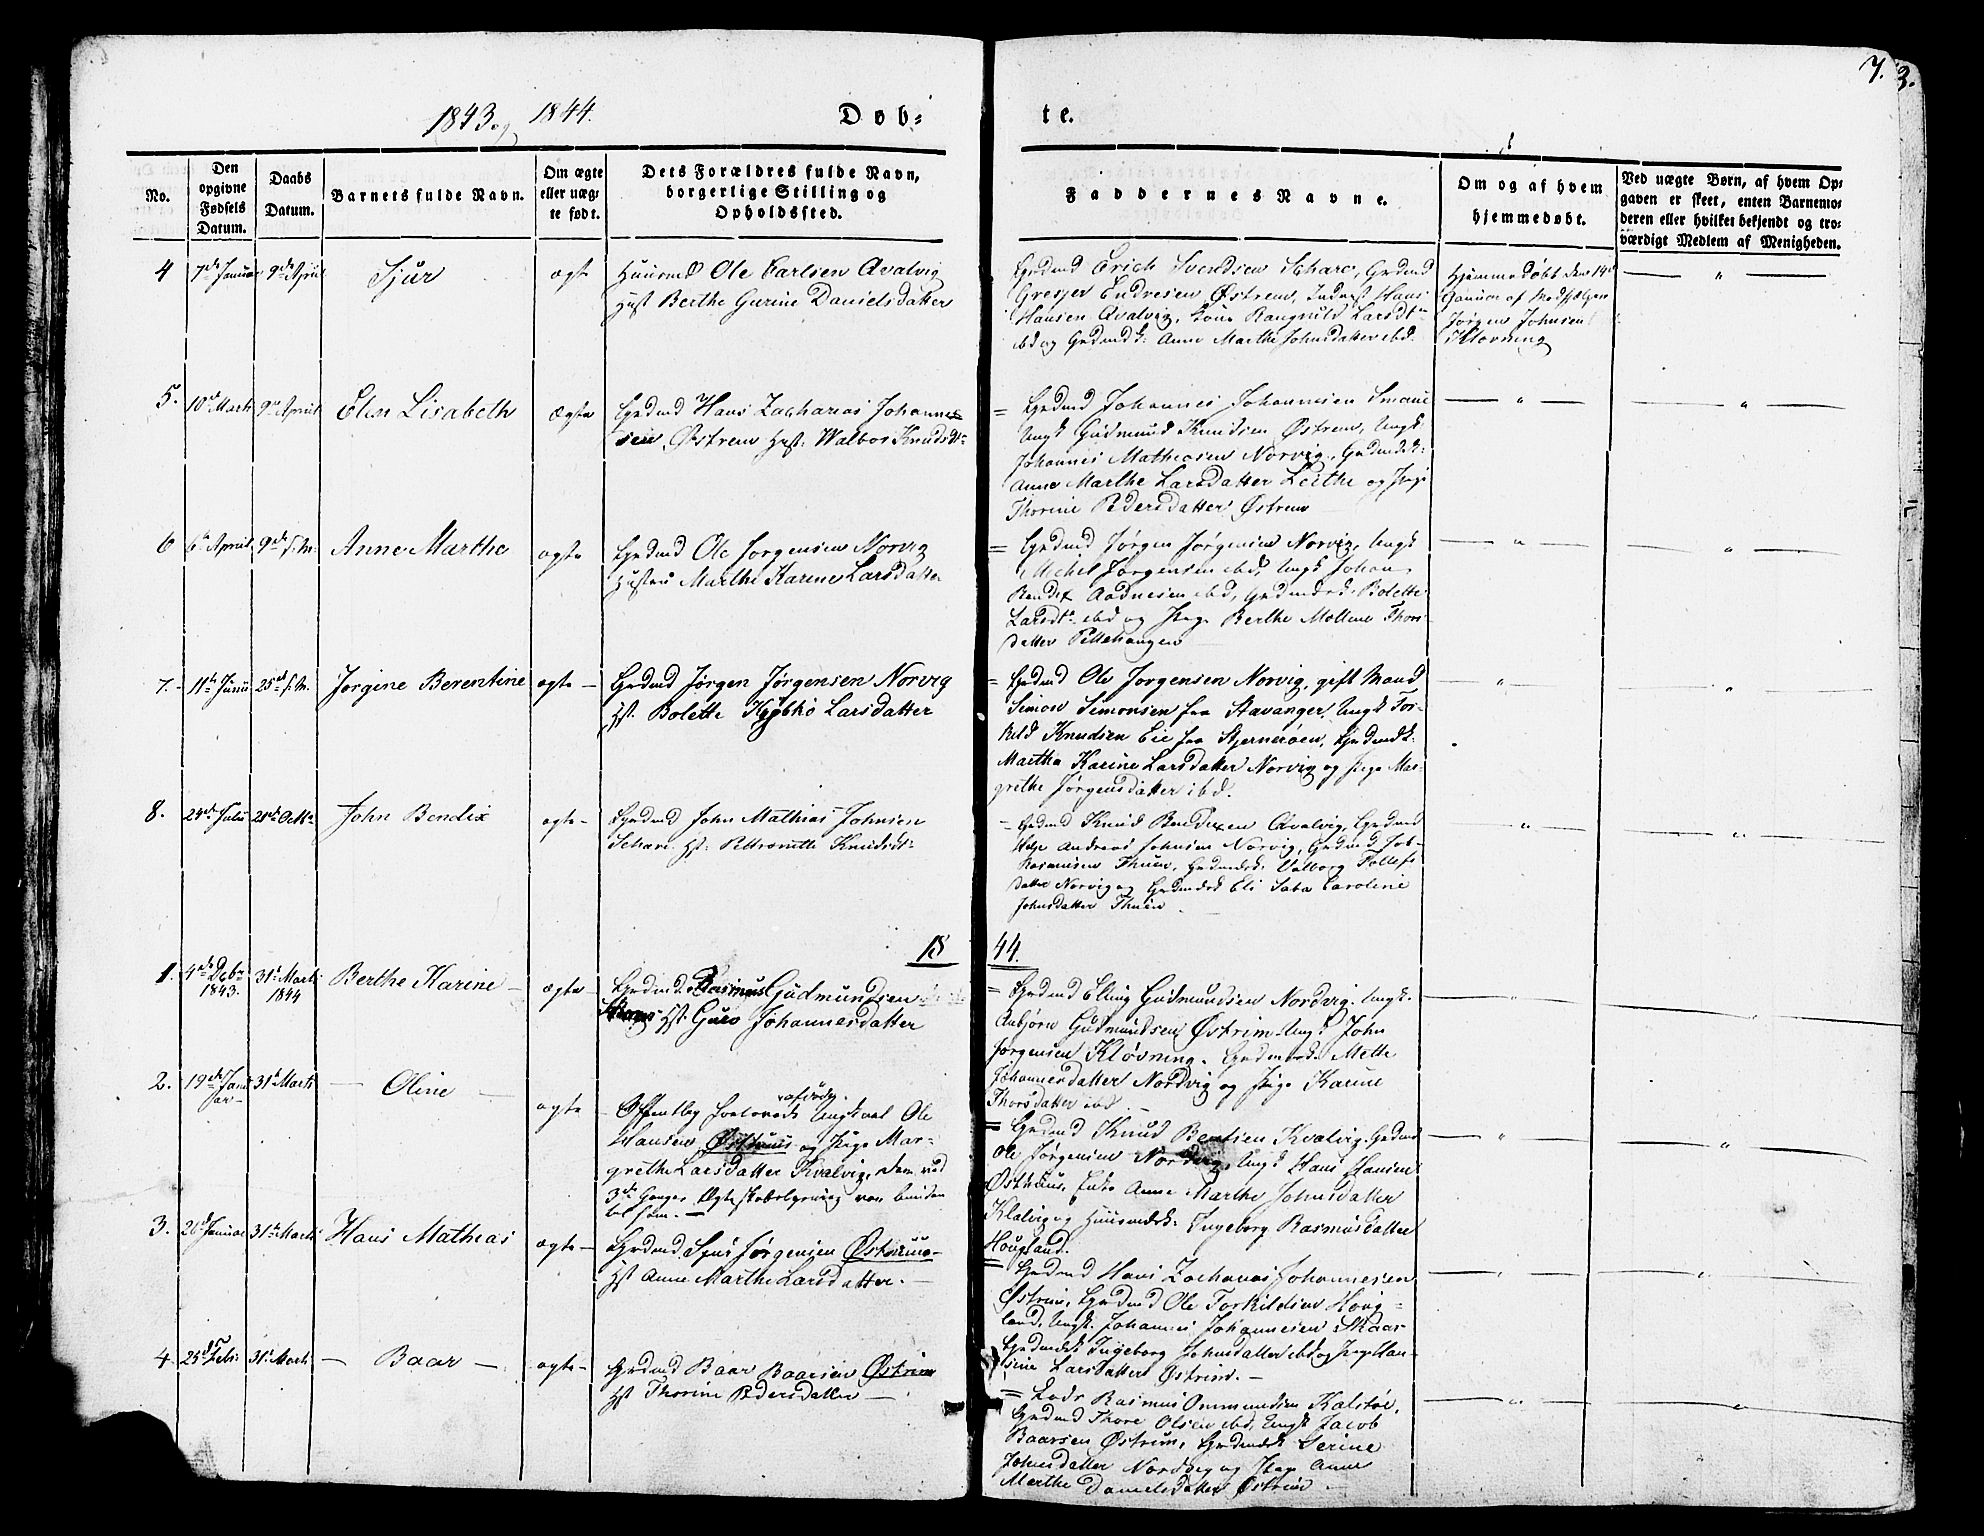 7. 3.
1843 og 1844.
Døb-
te.
No.
Den opgivne Fødsels Datum.
Daabs Datum.
Barnets fulde Navn.
Om ægte eller uægte født.
Dets Forældres fulde Navn, borgerlige Stilling og Opholdssted.
Faddernes Navne.
Om og af hvem hjemmedøbt.
Ved uægte Børn, af hvem Opgaven er skeet, enten Barnemoderen eller hvilket bekjendt og troværdigt Medlem af Menigheden.
4 7de Januar 9de April Sjur ægte
Huusmd Ole Carlsen Qvalvig
Hust Berthe Gurine Danielsdatter
Grdmd Erich Svendsen Schare, Grdmd
Endresen Østrem, Hans
Hansen Qvalvig, Kone Rangnild Larsdtr
ibd og Grdmdsk: Anne Marthe Johnsdatter ibd.
Hjemmedøbt den 14de
Januar af Medhjælper
Jørgen Johnsen
Kløvning
5. 10de Marts 9de April Elen Lisabeth ægte
Grdmd Hans Zacharias Johanne-
sen Østrem Hust: Walbor Knudsdtr
= Grdmd Johannes Johannesen
Ungk Gudmund Knudsen Østrem, Ungk
Johannes Mathiasen Norvig, Grdmdsk:
Anne Marthe Larsdatter Leithe og Pige
Thorine Pedersdatter Østrem
6 6te April 9de s. M. Anne Marthe ægte
Grdmd Ole Jørgensen Norvig
Hustru Marthe Karine Larsdatter
= Grdmd Jørgen Jørgensen Norvig, Ungk
Michel Jørgensen ibd, Ungk Johan
Bendix Aadnesen ibd, Grdmdsk Bolette
Larsdtr ibd og Pige Berthe Mallene Thors-
datter
7. 11te Juni 25de s. M. Jørgine Berentine ægte
Grdmd Jørgen Jørgensen Norvig
Hst. Bolette Larsdatter
= Grdmd Ole Jørgensen Norvig, gift Mand
Simon Simonsen fra Stavanger, Ungk Tor-
kild Knudsen Eie fra Stjernerøen, Grdmdsk:
Martha Karine Larsdatter Norvig og Pige Mar-
grethe Jørgensdatter ibd.
8. 24de Juli John Bendix ægte
Grdmd John Mathias Johnsen
Schare Hst: Knudsdtr
= Grdmd Knud Bendixen Qvalvig, Grdmd
Helje Andreas Johnsen Norvig, Grdmd Job
Rasmusen Thuen, Grdmdsk: Valborg Tollefs
datter Norvig og Grdmdsk Eli Saba Caroline
Johnsdatter Thuen
1844.
1. 4de Decbr 1843. 31te Marts 1844 Berthe Karine ægte
Grdmd Rasmus Gudmundsen
Hst. Guro Johannesdatter
= Grdmd Elling Gudmundsen Nordvig. Ungk.
Asbjørn Gudmundsen Østrim. Ungk John
Jørgensen Kløvning. Grdmdsk Mette
Johannesdatter Nordvig og Pige Karine
Thorsdatter ibd
2. 19de Januar 31te Marts Oline ægte
Offentlig forlovede Ungkarl Ole
Hansen Østhuus og Pige Mar-
grethe Larsdatter Kvalvig, dem ved
3de Ganger
= Grdmd Knud Bentsen Kvalvig. Grdmd
Ole Jørgensen Nordvig, Ungk Hans Hansen
Østhuus, Enke Anne Marthe Johnsdatter
Klalvig og Huusmdsk: Ingeborg Rasmusdatter
Hougland.
3. 26de Januar 31te Marts Hans Mathias ægte
Grdmd Jørgensen
Hst Anne Marthe Larsdatter.
= Grdmd Hans Zacharias Johannesen
Østrim, Grdmd Ole Torkildsen Houg-
land, Ungk. Johannes Johannesen Skaar
Grdmdsk Ingeborg Johnsdatter ibd og Pige Han-
sine Larsdatter Østrim.
4. 25de Febr: 31te Marts Baar ægte
Grdmd Baar Baarsen Østrim
Hst Thorine Pedersdatter
= Lods Rasmus Ommundsen Kalstøe,
Grdmd Thore Olsen ibd, Ungk Jacob
Baarsen Østrim, Grdmdsk Serine
Johnsdatter Nordvig og Pige Anne
Marthe Danielsdatter Østrim